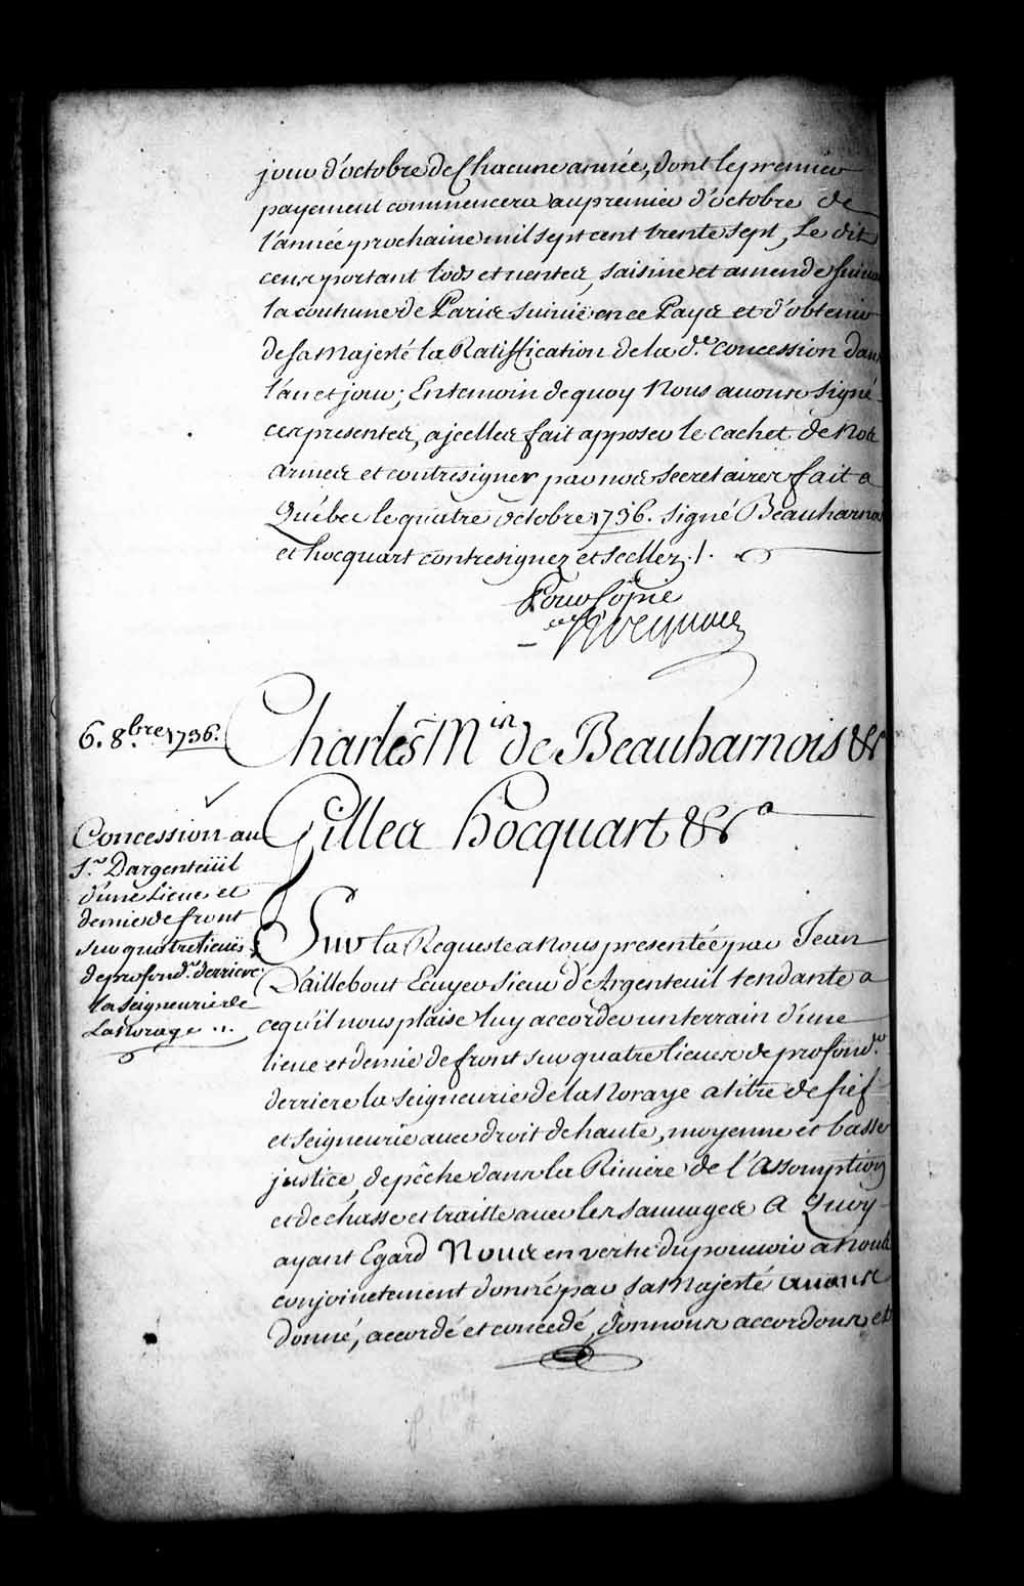 jour d'octobre de Chacune année, dont le premier
payement commencera au premier d'octobre de
l'année prochaine mil sept cent trente sept, Le dit
cens portant lods et ventes, saisine et amende suivant
la coutume de Paris suivië en ce Pays et d'obtenir
de sa Majesté la Ratiffication de la d.e concession dans
l'an et jour; En temoin de quoy Nous avons signé
ces presentes, a jcelles fait apposer le Cachet de Nos
armes et contresigner par nos secretaires fait a
Québec le quatre octobre 1736. signé Beauharnois
et hocquart contresignez et scellez ./.
Pour Copie
6. 8.bre 1736.
Charles M.is de Beauharnois &.a
Gilles hocquart &.a
Concession au
S.r Dargenteüil
d'une Lieue et
demie de front
sur quatre lieuës
de profond.r derriere
la seigneurie de
Lanoraye ...
Sur la Requeste a Nous presentée par Jean
Daillebout Ecuyer sieur d'Argenteuil tendante a
ce qu'il nous plaise luy accorder un terrain d'une
lieue et demie de front sur quatre lieues de profond.r
derriere la seigneurie de la Noraye a titre de fief
et seigneurie avec droit de haute, moyenne et basse
justice, de pêche dans la Riviere de l'Assomption
et de chasse et traitte avec les sauvages A Quoy
ayant Egard Nous en vertu du pouvoir a Nous
conjoinctement donné par sa Majesté avons
donné, accordé et concedé, donnons accordons et